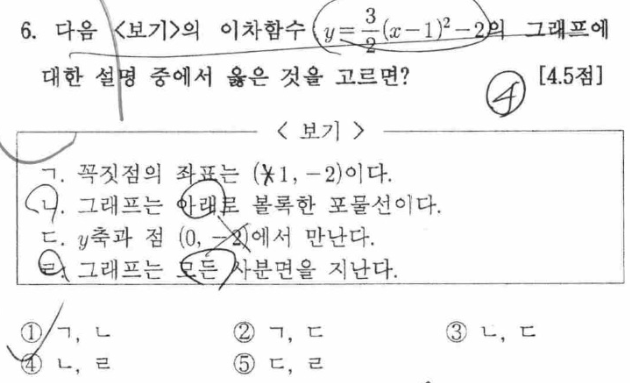 6. 다음 <보기>의 이차함수 y=3/2(x-1)²-2의 그래프에
대한 설명 중에서 옳은 것을 고르면? [4.5점]
④
< 보기 >
ㄱ. 꼭짓점의 좌표는 (-1, -2)이다.
ㄴ. 그래프는 아래로 볼록한 포물선이다.
ㄷ. y축과 점 (0, -2)에서 만난다.
ㄹ. 그래프는 모든 사분면을 지난다.
① ㄱ, ㄴ ② ㄱ, ㄷ ③ ㄴ, ㄷ
④ ㄴ, ㄹ ⑤ ㄷ, ㄹ